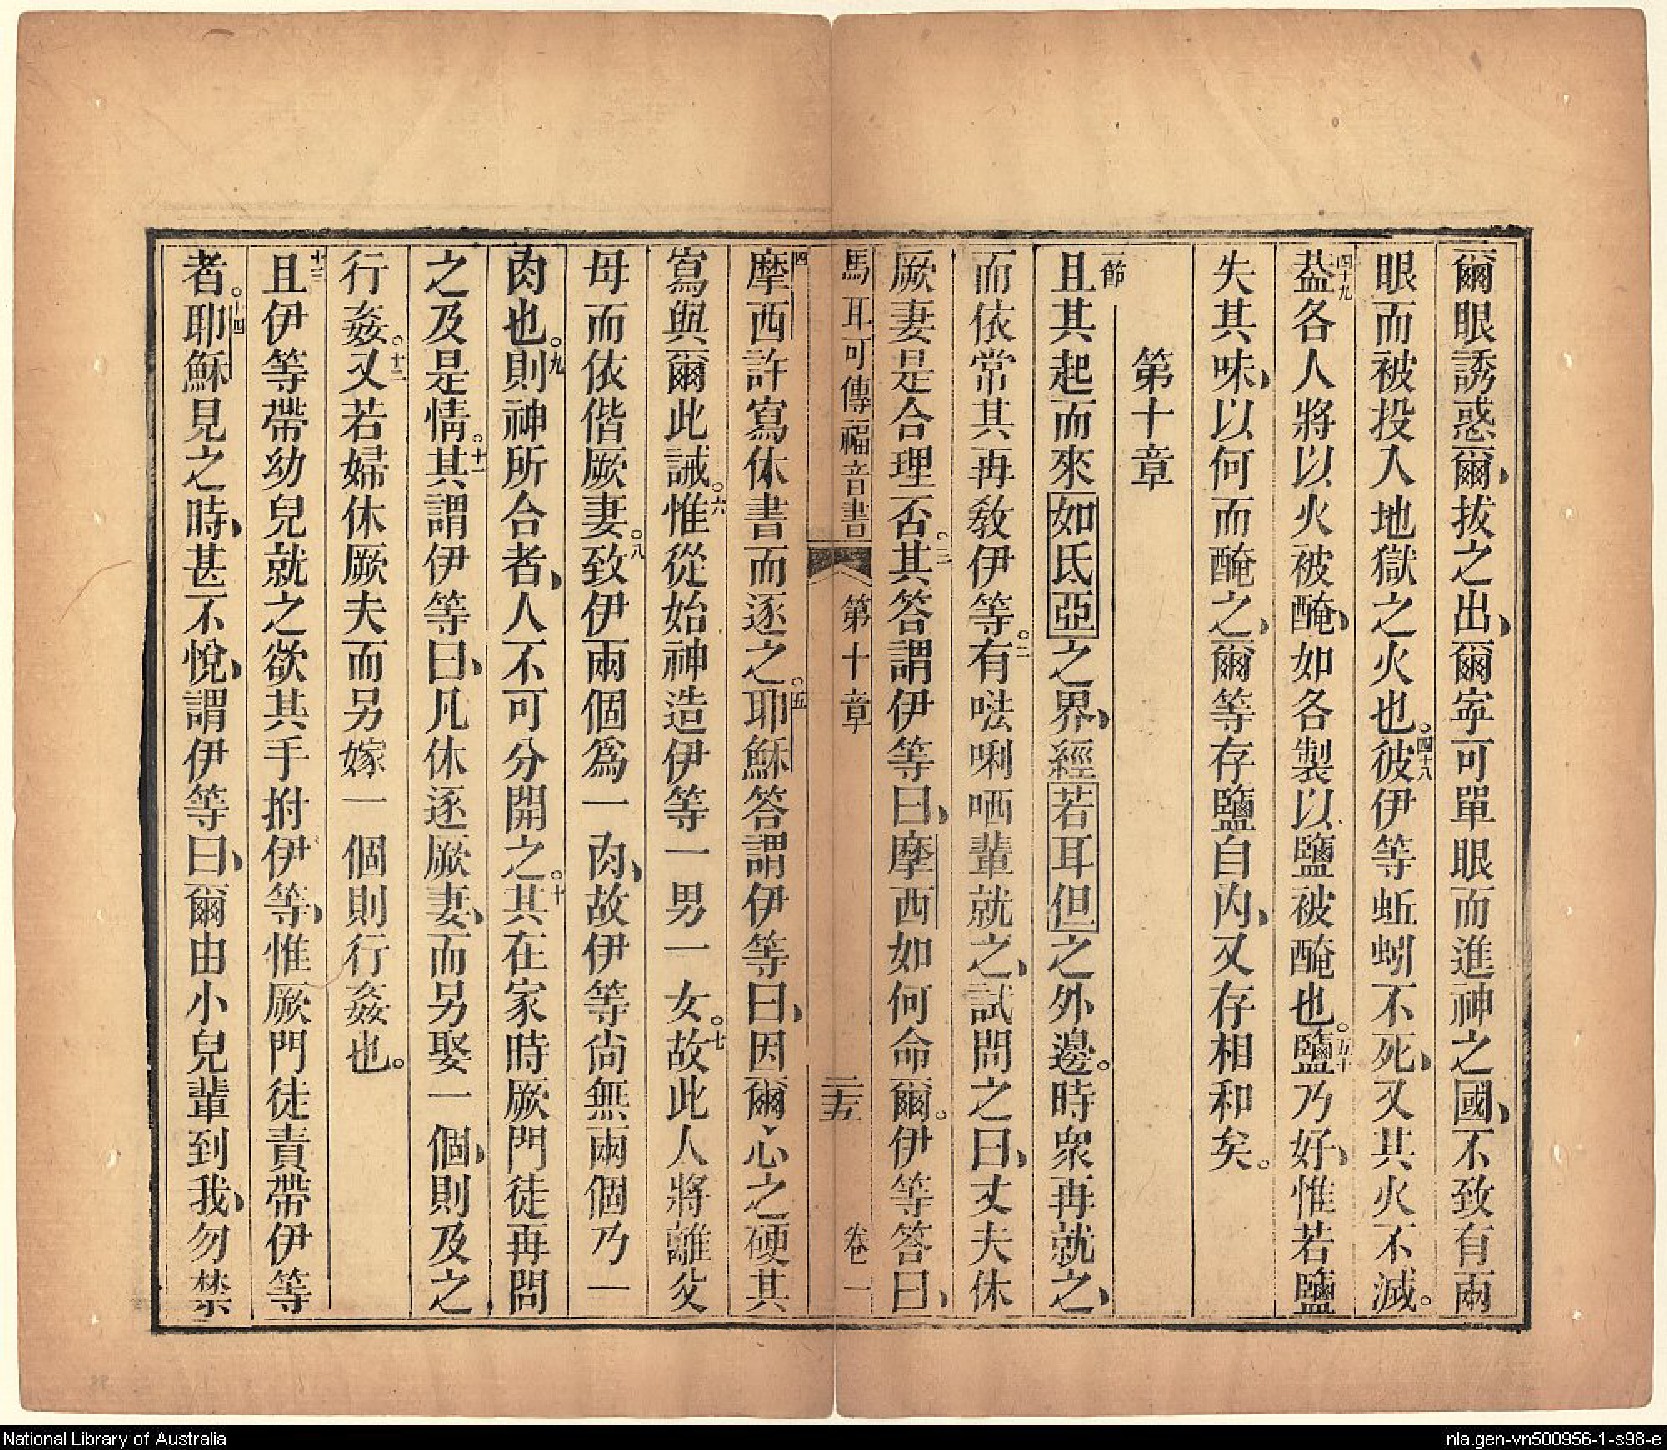 爾眼誘惑爾、拔之出、爾寜可單眼而進神之國、不致有兩
眼而被投入地獄之火也。四十八彼伊等蚯蚓不死、又其火不滅。
四十九葢各人將以火被醃、如各製以鹽被醃也。五十鹽乃好、惟若鹽
失其味、以何而醃之、爾等存鹽自內、又存相和矣。
第十章
一節且其起而來如氐亞之界、經若耳但之外邊。時衆再就之、
而依常其再敎伊等。二有𠵽唎哂輩就之、試問之曰、丈夫休
厥妻是合理否。三其答謂伊等曰、摩西如何命爾。伊等答曰、
馬耳可傳福音書 第十章 二十五 卷一
四摩西許寫休書而逐之。五耶穌答謂伊等曰、因爾心之硬其
寫與爾此誡。六惟從始神造伊等一男一女。七故此人將離父
母而依偕厥妻。八致伊兩個爲一肉、故伊等尙無兩個乃一
肉也。九則神所合者、人不可分開之。十其在家時厥門徒再問
之及是情。十一其謂伊等曰、凡休逐厥妻、而另娶一個、則及之
行姦。十二又若婦休厥夫而另嫁一個則行姦也。
十三且伊等帶幼兒就之欲其手拊伊等、惟厥門徒責帶伊等
者。十四耶穌見之時、甚不悅、謂伊等曰、爾由小兒輩到我、勿禁
National Library of Australia
nla.gen-vn500956-1-s98-e